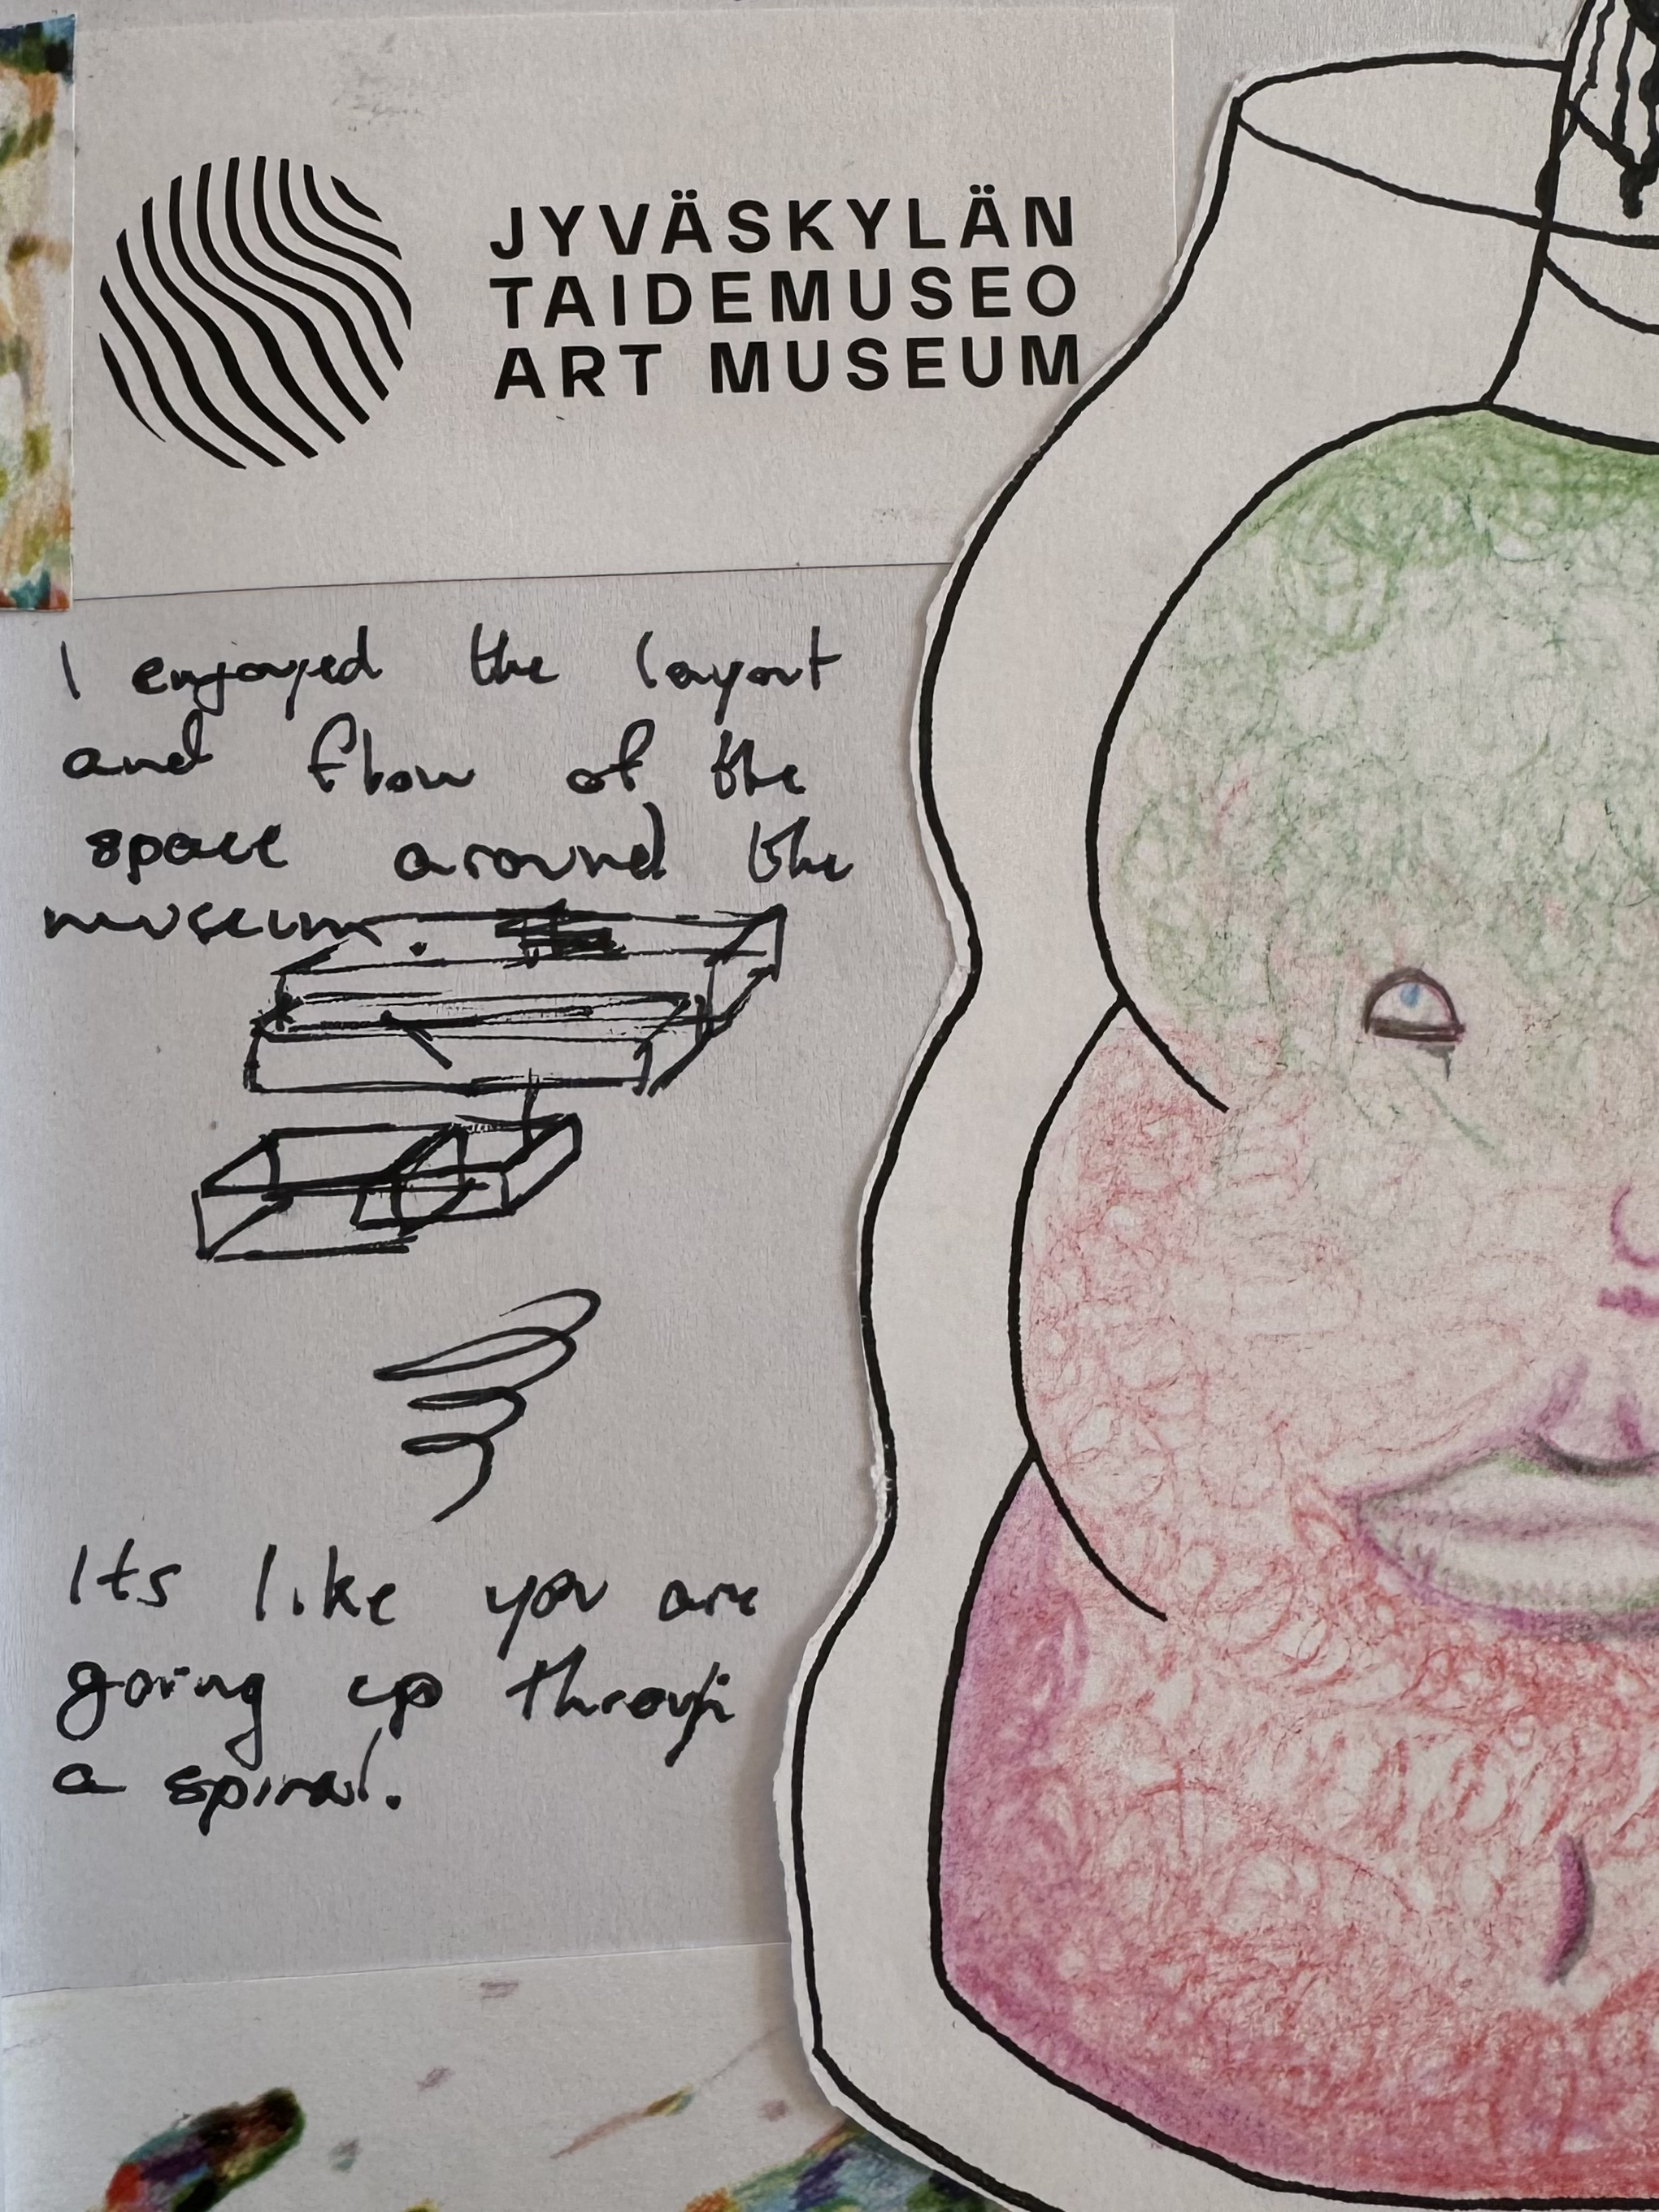 JYVÄSKYLÄN
TAIDEMUSEO
ART MUSEUM
I enjoyed the layout
and flow of the
space around the
museum.
Its like you are
going up through
a spiral.